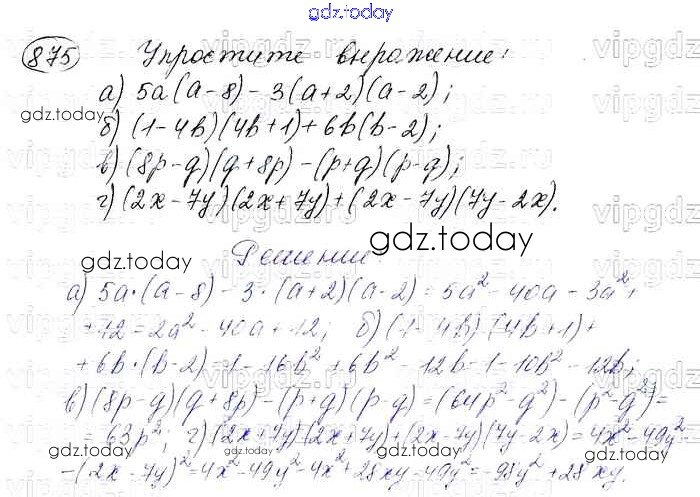 gdz.today
875 Упростите выражение:
а) 5a(a-8)-3(a+2)(a-2);
б) (1-4b)(4b+1)+6b(b-2);
в) (8p-q)(q+8p)-(p+q)(p-q);
г) (2x-7y)(2x+7y)+(2x-7y)(7y-2x).
Решение.
а) 5a·(a-8)-3·(a+2)(a-2)=5a²-40a-3a²+
+12=2a²-40a+12; б) (1-4b)·(4b+1)+
+6b·(b-2)=1-16b²+6b²-12b=1-10b²-12b;
в) (8p-q)(q+8p)-(p+q)(p-q)=(64p²-q²)-(p²-q²)=
=63p²; г) (2x+7y)(2x+7y)+(2x-7y)(7y-2x)=4x²-49y²-
-(2x-7y)²=4x²-49y²-4x²+28xy-49y²=-98y²+28xy.
gdz.today
gdz.today
gdz.today
gdz.today
gdz.today
gdz.today
vipgdz.ru